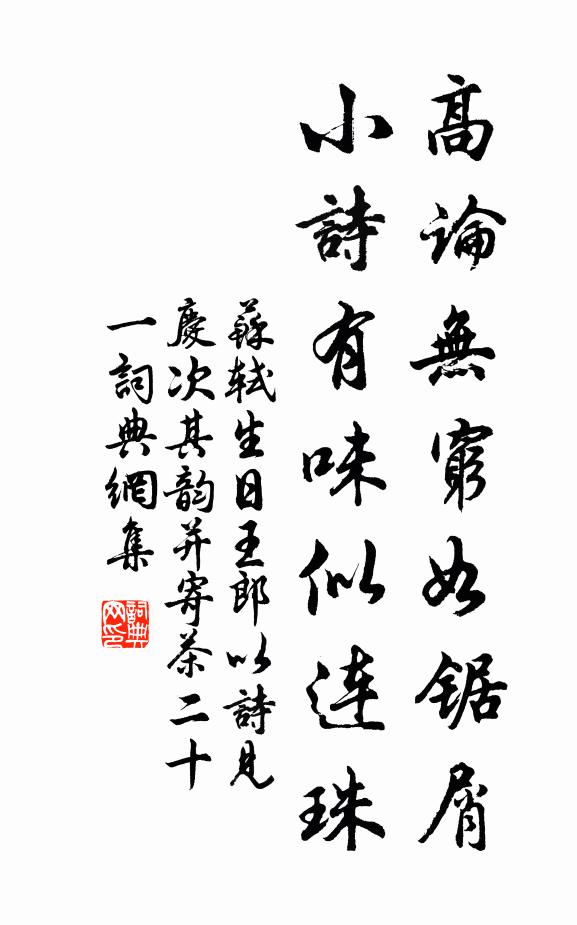 高論無窮如鋸屑
小詩有味似連珠
蘇軾生日王郎以詩見
慶次其韵并寄茶二十
一詞典網集
詞典网印